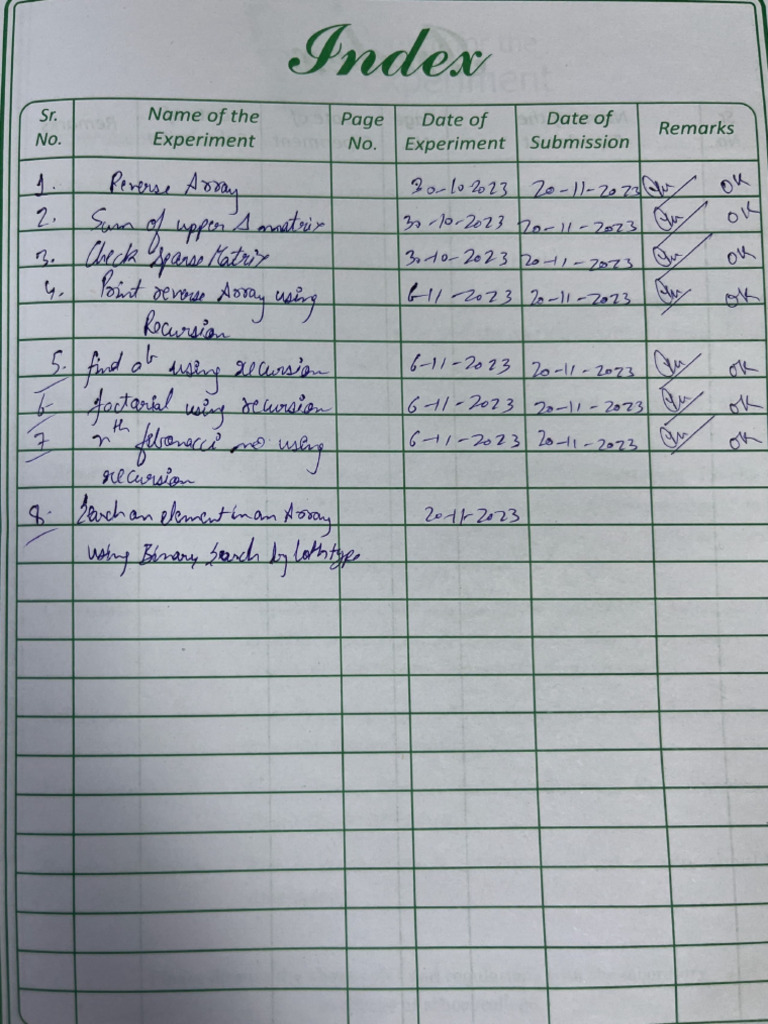 Index
Sr. No. Name of the Experiment Page No. Date of Experiment Date of Submission Remarks
1. Reverse Array 30-10-2023 20-11-2023 OK
2. Sum of upper Δ matrix 30-10-2023 20-11-2023 OK
3. Check Sparse Matrix 30-10-2023 20-11-2023 OK
4. Print reverse Array using 6-11-2023 20-11-2023 OK
Recursion
5. find a^b using recursion 6-11-2023 20-11-2023 OK
6- factorial using recursion 6-11-2023 20-11-2023 OK
7 nth fibonacci no. using 6-11-2023 20-11-2023 OK
recursion
8- Search an element in an Array 20-11-2023
using Binary Search by both type